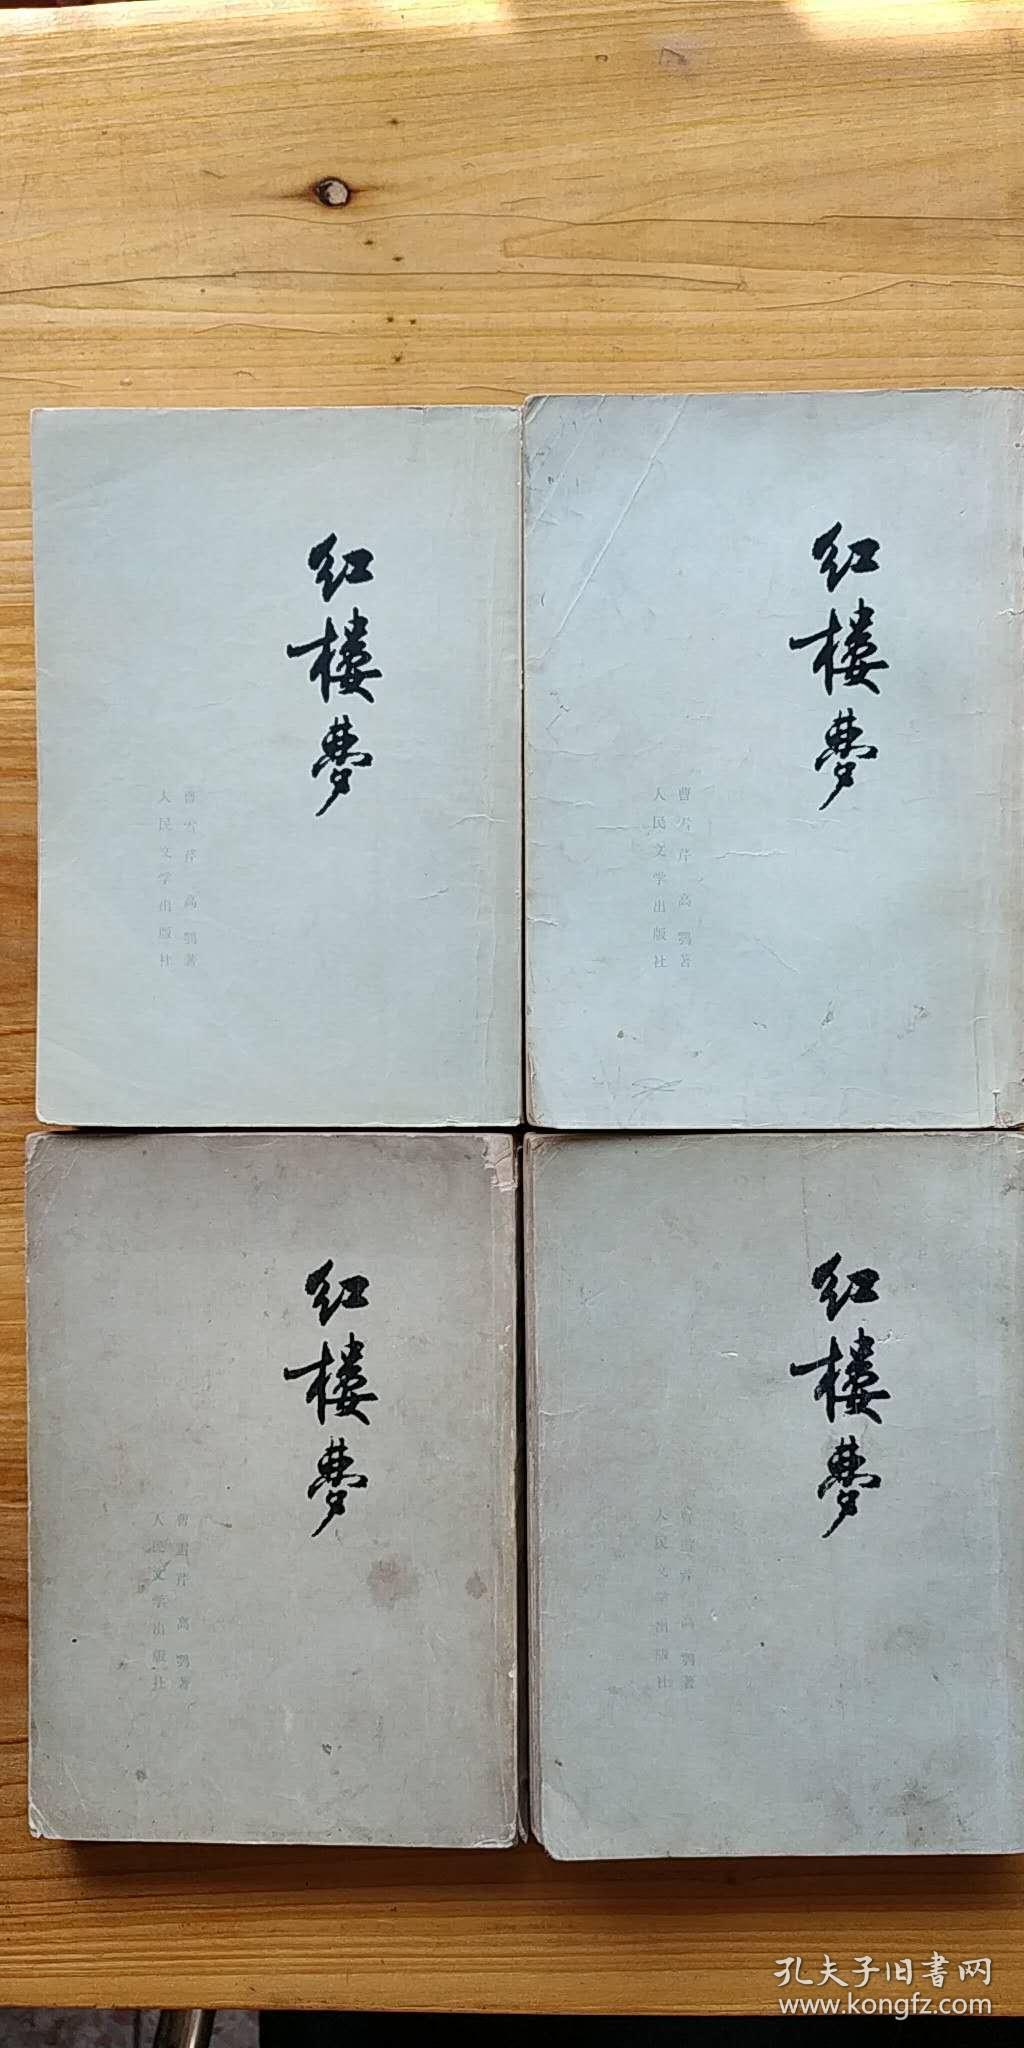 红楼梦
曹雪芹 高鹗著
人民文学出版社
红楼梦
曹雪芹 高鹗著
人民文学出版社
红楼梦
曹雪芹 高鹗著
人民文学出版社
红楼梦
曹雪芹 高鹗著
人民文学出版社
孔夫子旧书网
www.kongfz.com